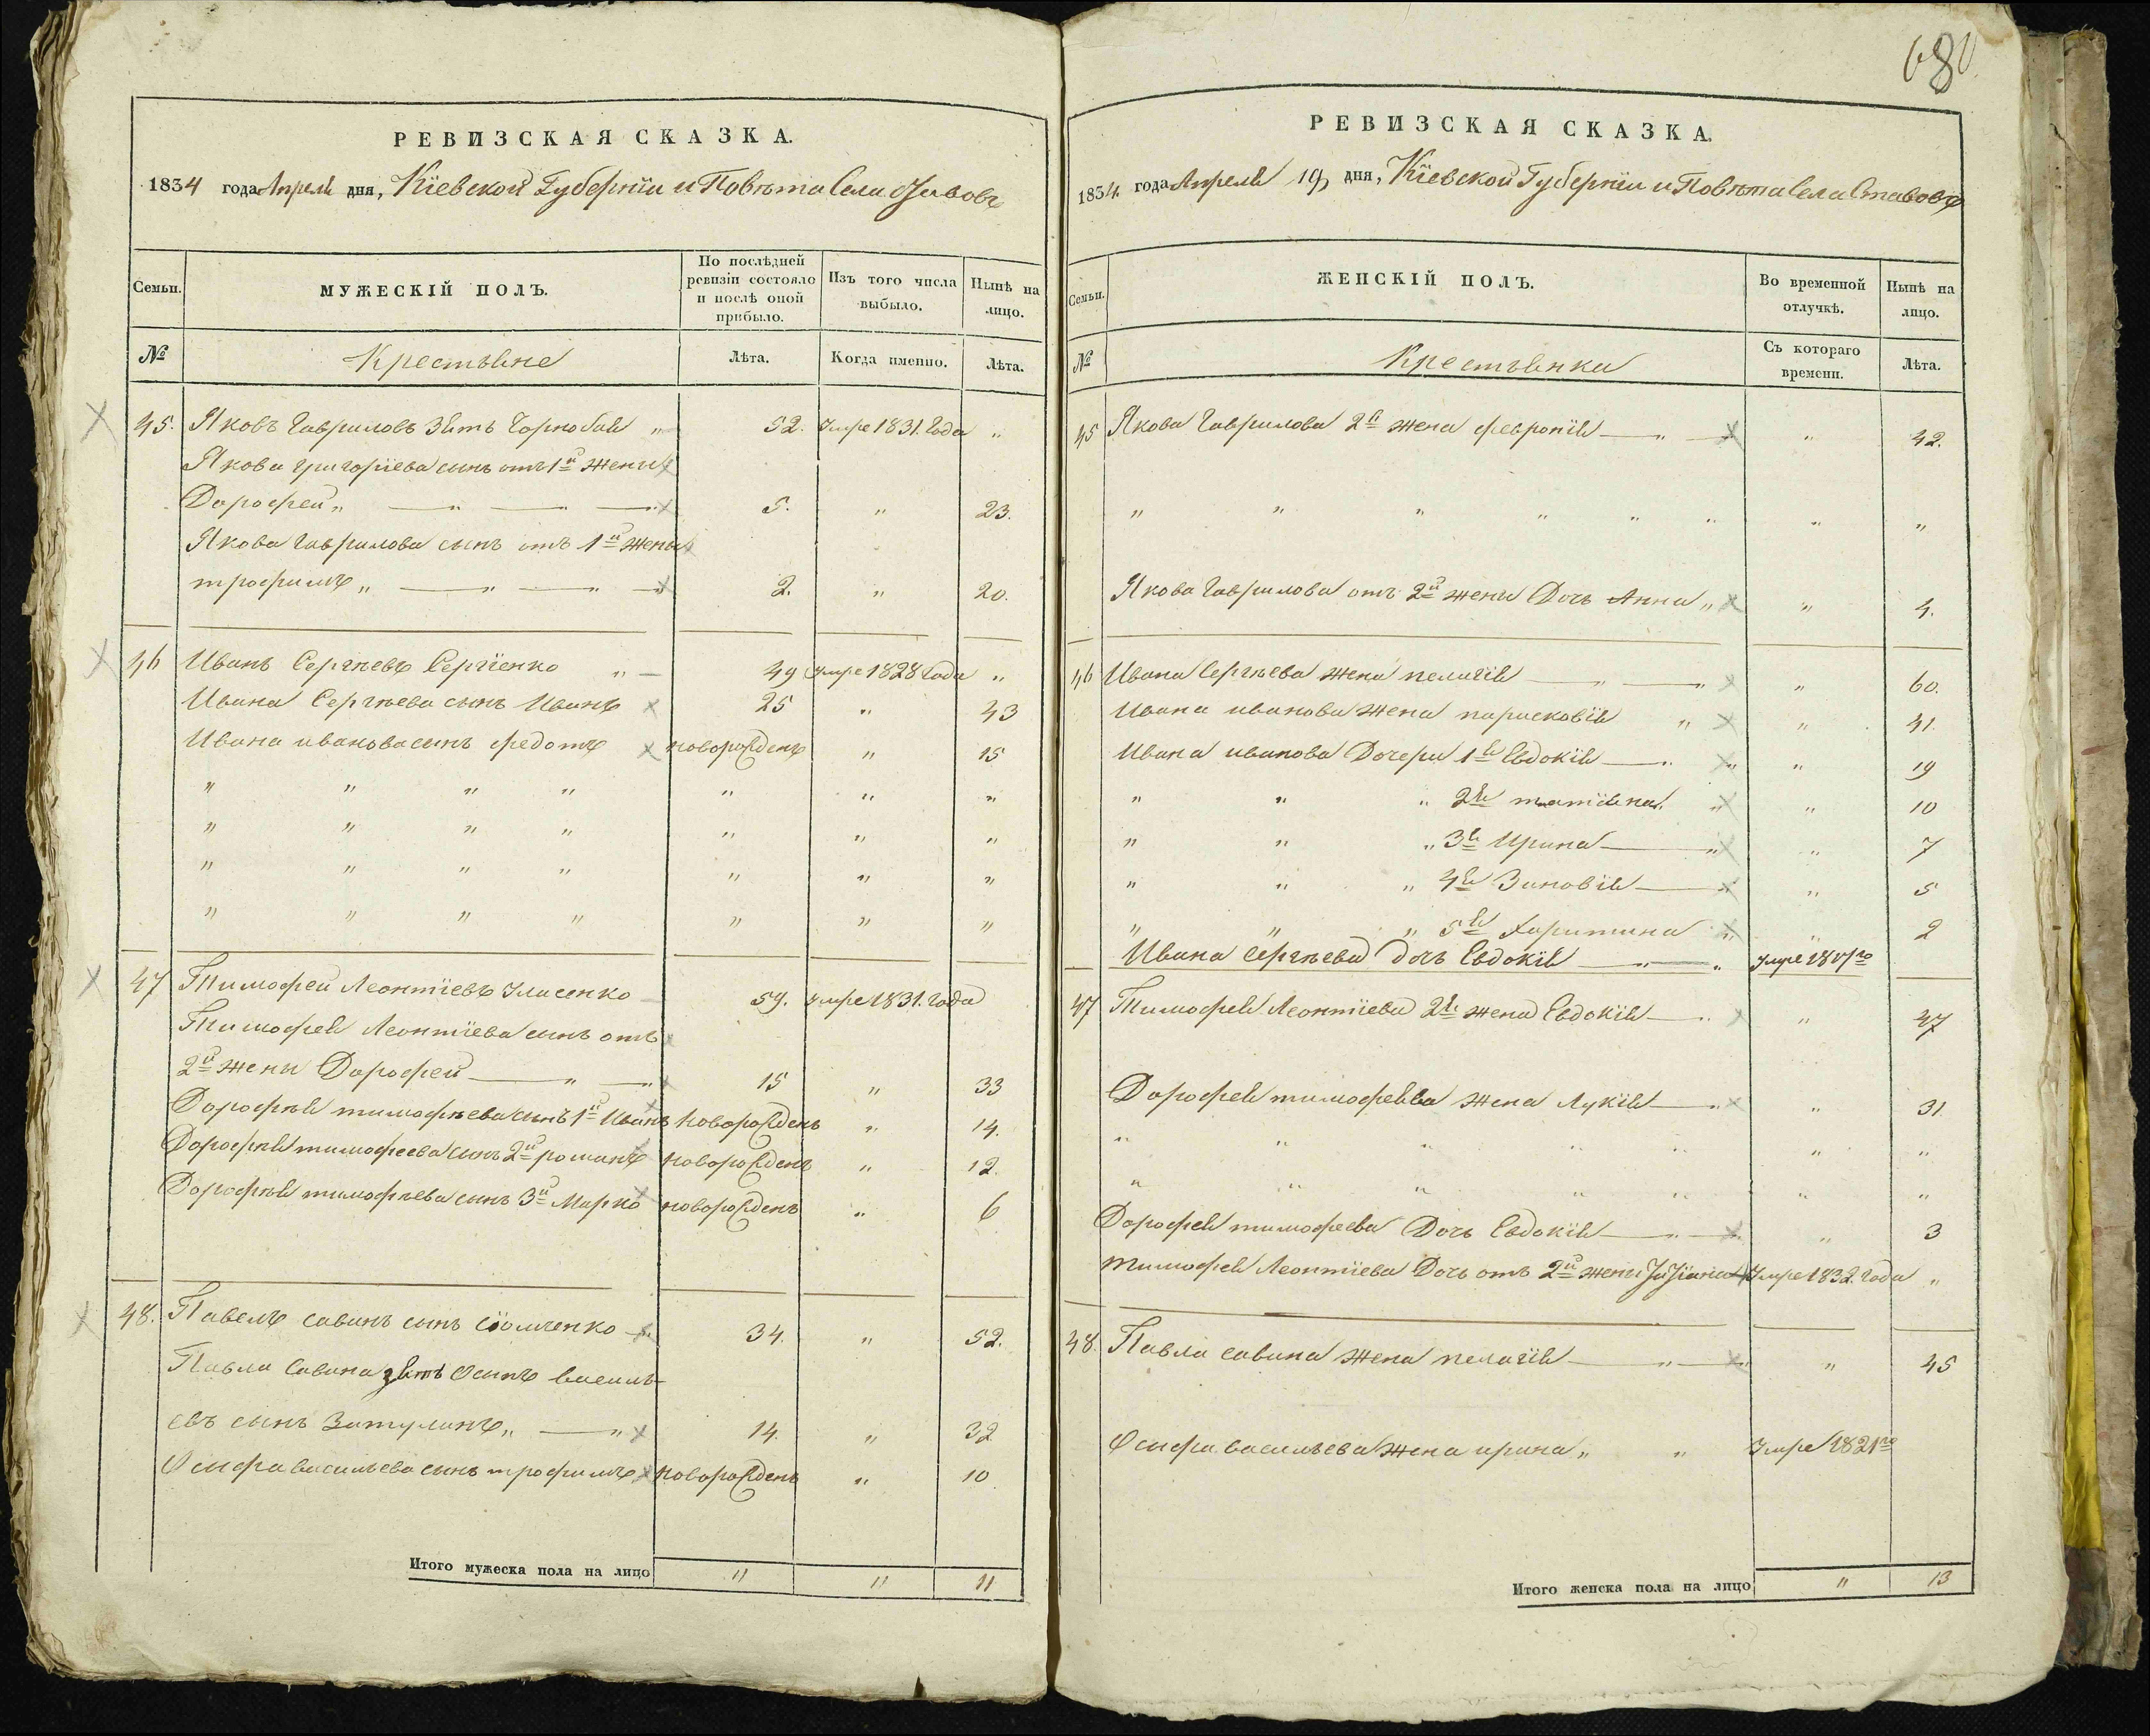 680.
РЕВИЗСКАЯ СКАЗКА.
1834 года Апреля дня, Кіевской Губерніи и Повѣта Села Ставовъ
Семьи. МУЖЕСКІЙ ПОЛЪ. По послѣдней ревизіи состояло и послѣ оной прибыло. Изъ того числа выбыло. Нынѣ на лицо.
№ Крестьяне Лѣта. Когда именно. Лѣта.
45. Яковъ Гавриловъ Зять Чорнобай " 52. Умре 1831. Года "
Якова григоріева сынъ отъ 1й жены
Дорофей " — " — " — " 5. " 23.
Якова гаврилова сынъ отъ 1й жены
трофимъ " — " — " — " 2. " 20.
46 Иванъ Сергѣевъ Сергіенко " — 49 Умре 1828 Года "
Ивана Сергѣева сынъ Иванъ 25 " 43
Ивана иванова сынъ федотъ новорожденъ " 15
" " " " " " "
" " " " " " "
" " " " " " "
" " " " " " "
47 Тимофей Леонтіевъ Уласенко 59. Умре 1831. Года
Тимофея Леонтіева сынъ отъ
2й жены Дорофей — " — " 15 " 33
Дорофѣя тимофѣева сынъ 1й Иванъ новорожденъ " 14.
Дорофѣя тимофеева сынъ 2й романъ новорожденъ " 12.
Дорофѣя тимофѣева сынъ 3й Марко новорожденъ " 6
48. Павелъ савинъ сынъ 34. " 52.
Павла Савина зять Осипъ василь-
евъ сынъ Затулинъ " — " 14. " 32
Осифа васильева сынъ трофимъ новорожденъ " 10
Итого мужеска пола на лицо " " 11
РЕВИЗСКАЯ СКАЗКА.
1834 года Апреля 19 дня, Кіевской Губерніи и Повѣта Села Ставовъ
Семьи. ЖЕНСКІЙ ПОЛЪ. Во временной отлучкѣ. Нынѣ на лицо.
№ Крестьянки Съ котораго времени. Лѣта.
45 Якова Гаврилова 2я жена февронія — " — " 42.
" " " " " " " "
Якова Гаврилова отъ 2й жены Дочь Анна " " 4.
46 Ивана Сергѣева жена пелагія — " — " " 60.
Ивана иванова жена парасковія " " 41.
Ивана иванова Дочери 1я Евдокія — " " " 19
" " " 2я татіяна " " 10
" " " 3я Ирина — " " 7
" " " 4я Зиновія — " " 5
" " " 5я Харитина " " 2
Ивана Сергѣева дочь Евдокія — " — " Умре 1817го
47 Тимофея Леонтіева 2я жена Евдокія — " " 47
Дорофея тимофеива жена Лукія — " " 31.
" " " " " " "
" " " " " " "
Дорофея тимофеева Дочь Евдокія — " — " " 3
Тимофея Леонтіева Дочь отъ 2й жены Умре 1832. Года "
48. Павла савина жена пелагія — " — " " 45
Осифа васильева жена ирина " " Умре 1821го
Итого женска пола на лицо " 13